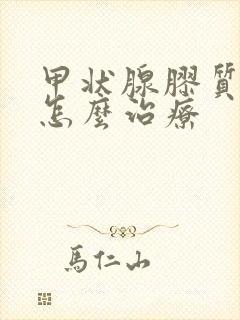 甲状腺膠質
怎麼治療
馬仁山